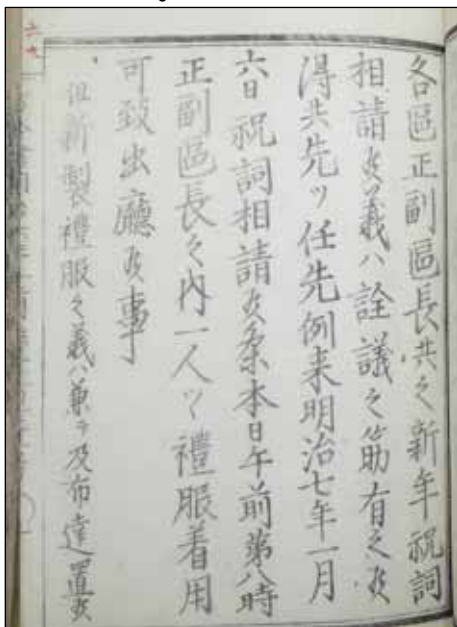 各區正副區長共之新年祝詞
相請候義ハ詮議之筋有之候
得共先ツ任先例来明治七年一月
六日祝詞相請候条本日午前第八時
正副區長之内一人ツヽ禮服着用
可致出廳候事
但新製禮服之義ハ兼テ及布達置候